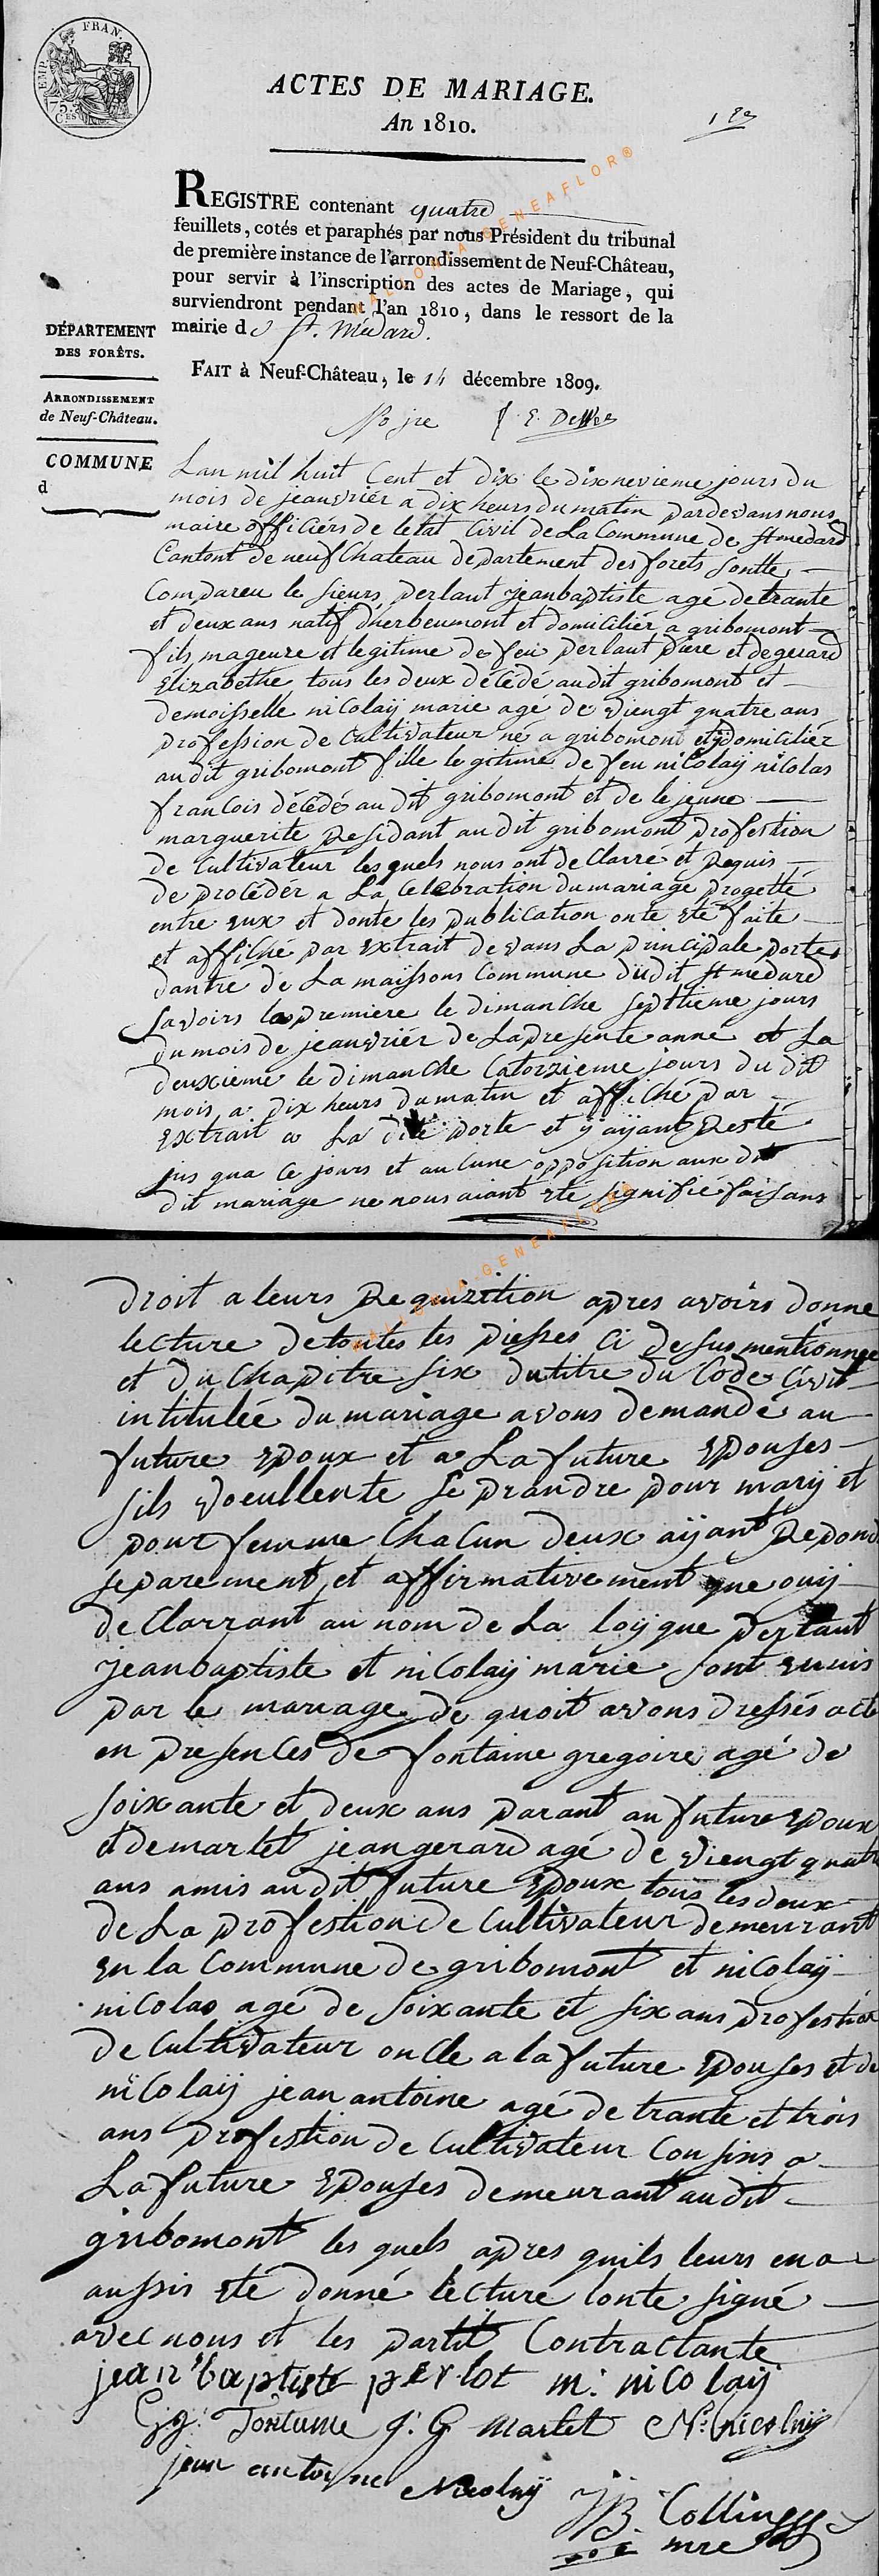 EMP. FRAN.
75.
C.ES
ACTES DE MARIAGE.
An 1810.
REGISTRE contenant quatre
feuillets, cotés et paraphés par nous Président du tribunal
de première instance de l'arrondissement de Neuf-Château,
pour servir à l'inscription des actes de Mariage, qui
surviendront pendant l'an 1810, dans le ressort de la
mairie d St. Médard.
DÉPARTEMENT
DES FORÊTS.
FAIT à Neuf-Château, le 14 décembre 1809.
ARRONDISSEMENT
de Neuf-Château.
COMMUNE
d
Lan mil huit Cent et dix le dixnevieme jours du
mois de jeanvriér a dix heurs du matin pardevans nous
maire officiérs de letat Civil de La Commune de St medard
Cantont de neufChateau departement des forets sontte
Compareu le sieurs perlaut jeanbaptiste agé detrante
et deux ans natif dherbeumont et domiciliér a gribomont
fils mageure et legitime de feu perlaut piere et degerard
Elizabethe tous les deux décédé audit gribomont et
demoisselle nicolaÿ marie agé de viengt quatre ans
profession de Cultivateur né a gribomont etÿ domiciliér
audit gribomont fille legitime de feu nicolaÿ nicolas
francois décédé au dit gribomont et de le jeune
marguerite Residant au dit gribomont profestion
de Cultivateur les quels nous ont de Clarré et Requis
de procédér a La Celebration du mariage progetté
entre eux et donte les publication onte eté faite
et affiché par extrait devans La principale porte
dantre de La maissons Commune dudit St medard
savoirs la premiere le dimanche septtieme jours
du mois de jeanvriér de Lapresente anné et La
deuxcieme le dimanche Catorzieme jours du dit
mois a dix heurs du matin et affiché par
extrait a La dite porte et ÿ aÿant Resté
jus qua ce jours et aucune opposition aux dit
dit mariage ne nous aiant eté signifié faisans
droit a leurs Requizition apres avoirs donne
lecture de toutes les piesses ci desus mentionnee
et du Chapitre six dutitre du Code Civil
intitulée du mariage avons demandé au
future epoux et a La future epouses
sils voeullente se prandre pour marÿ et
pour femme Chacun deux aÿant Repond
separement et affirmativement que ouÿ
de Clarrant au nom de La loÿ que perlaut
jeanbaptiste et nicolaÿ marie sont eunis
par le mariage de quoit avons dressés acte
en presences de fontaine gregoire agé de
soixante et deux ans parant au future epoux
et demartet jean gerard agé de viengt quatre
ans amis audit future epoux tous les deux
de La profestion de Cultivateur demeurant
en la Commune de gribomont et nicolaÿ
nicolas agé de soixante et six ans profestion
de Cultivateur oncle a la future epouses et de
nicolaÿ jean antoine agé de trante et trois
ans profestion de Cultivateur Cousins a
La future epouses demeurant audit
gribomont les quels apres quils leurs en a
aussis eté donné lecture lonte signé
avec nous et les partit Contractante
jean baptiste perlot m: nicolaÿ
Gg: Fontaine J: G Martet N: Nicolaÿ
jean antoine Nicolaÿ
JB. Collin
mre
WALLONIA-GENEAFLOR®
WALLONIA-GENEAFLOR®